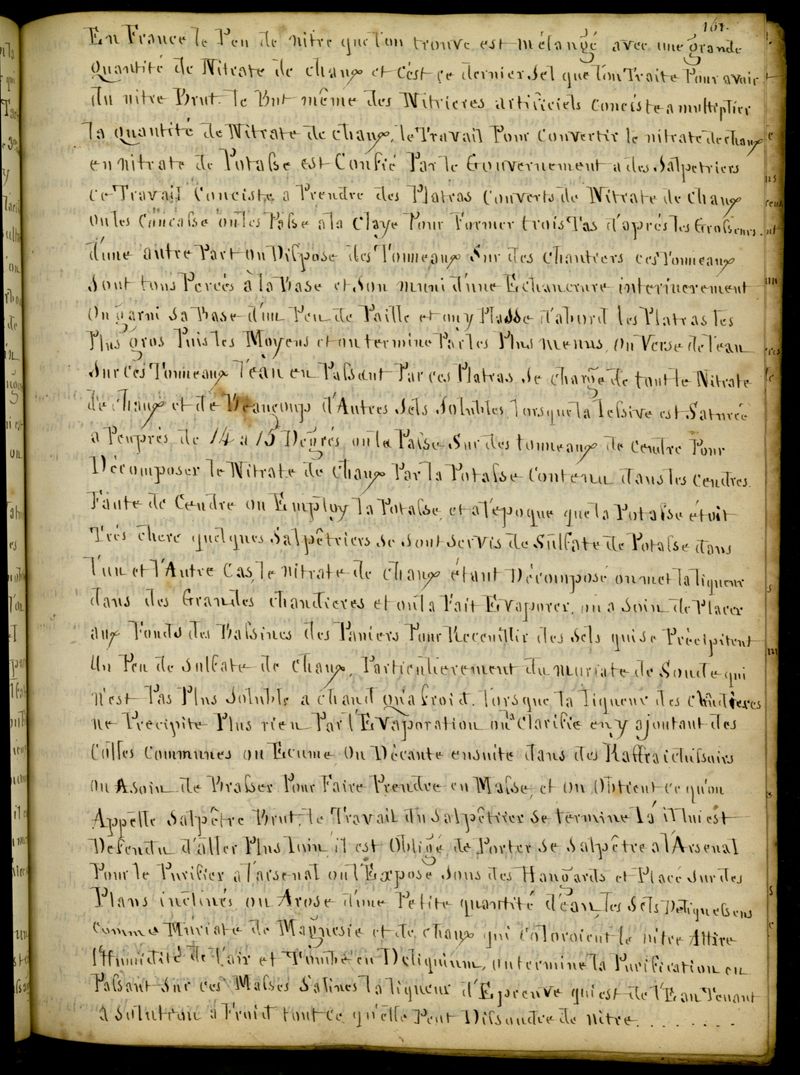 161.
En France le Peu de nitre que l'on trouve est mélangé avec une grande
Quantité de Nitrate de chaux et c'est ce dernier Sel que l'on Traite Pour avoir
du nitre Brut. le But même des Nitrieres artificiels Conciste a multiplier
la quantité de Nitrate de chaux, le Travail Pour Convertir le nitrate de chaux
en nitrate de Potasse est Confié Par le Gouvernement a des Salpetriers
Ce Travail Conciste a Prendre des Platras Couverts de Nitrate de Chaux
on les Concasse on les Passe a la Claye Pour Former trois Tas d'après les Grosseurs.
d'une autre Part on Dispose des Tonneaux Sur des Chantiers ces Tonneaux
Sont tous Percés a la Base et Son muni d'une Echancrure interieurement
On garni Sa Base d'un Peu de Paille et on y Plasse d'abord les Platras les
Plus gros Puis les Moyens et on termine Par les Plus menus, on Verse de l'eau
Sur ces Tonneaux l'eau en Passant Par ces Platras Se charge de tout le Nitrate
de chaux et de Beauçoup d'Autres Sels Solubles, lorsque la lessive est Saturée
a Peuprès de 14 a 15 Degrés on la Passe Sur des tonneaux de Cendre Pour
Décomposer le Nitrate de Chaux Par la Potasse Contenu dans les Cendres.
Faute de Cendre on Employ la Potasse, et a l'epoque que la Potasse étoit
Très chere quelques Salpêtriers Se Sont Servis de Sulfate de Potasse dans
l'un et l'Autre Cas, le nitrate de chaux étant Décomposé on met la liqueur
dans des Grandes chaudieres et on la Fait Evaporer, on a Soin de Placer
aux Fonds des Bassines des Paniers Pour Receuillir des Sels qui Se Précipitent
Un Peu de Sulfate de chaux, Particulierement du muriate de Soude qui
n'est Pas Plus Soluble a chaud qu'a froid. lorsque la liqueur des Chaudieres
ne Precipite Plus rien Par l'Evaporation on la Clarifie en y ajoutant des
Colles Communes on Ecume On Décante ensuite dans des Raffraichissoirs
On A Soin de Brasser Pour Faire Prendre en Masse, et On Obtient ce qu'on
Appelle Salpêtre Brut, le Travail du Salpêtrier Se termine la il lui est
Defendu d'aller Plus loin, il est Obligé de Porter Se Salpêtre a l'Arsenal
Pour le Purifier a l'arsenal on l'Expose Sous des Hangards et Placé Sur des
Plans inclinés on Arose d'une Petite quantité d'eau, les Sels Déliquessens
Comme Muriate de Magnesie et de chaux qui Coloroient le nitre Attire
l'Humidité de l'air et Tombe en Deliquium, on termine la Purification en
Passant Sur ces Masses Salines la liqueur d'Epreuve qui est de l'Eau Tenant
a Solution a Froid tout ce qu'elle Peut Dissoudre de nitre. . . . . . . .